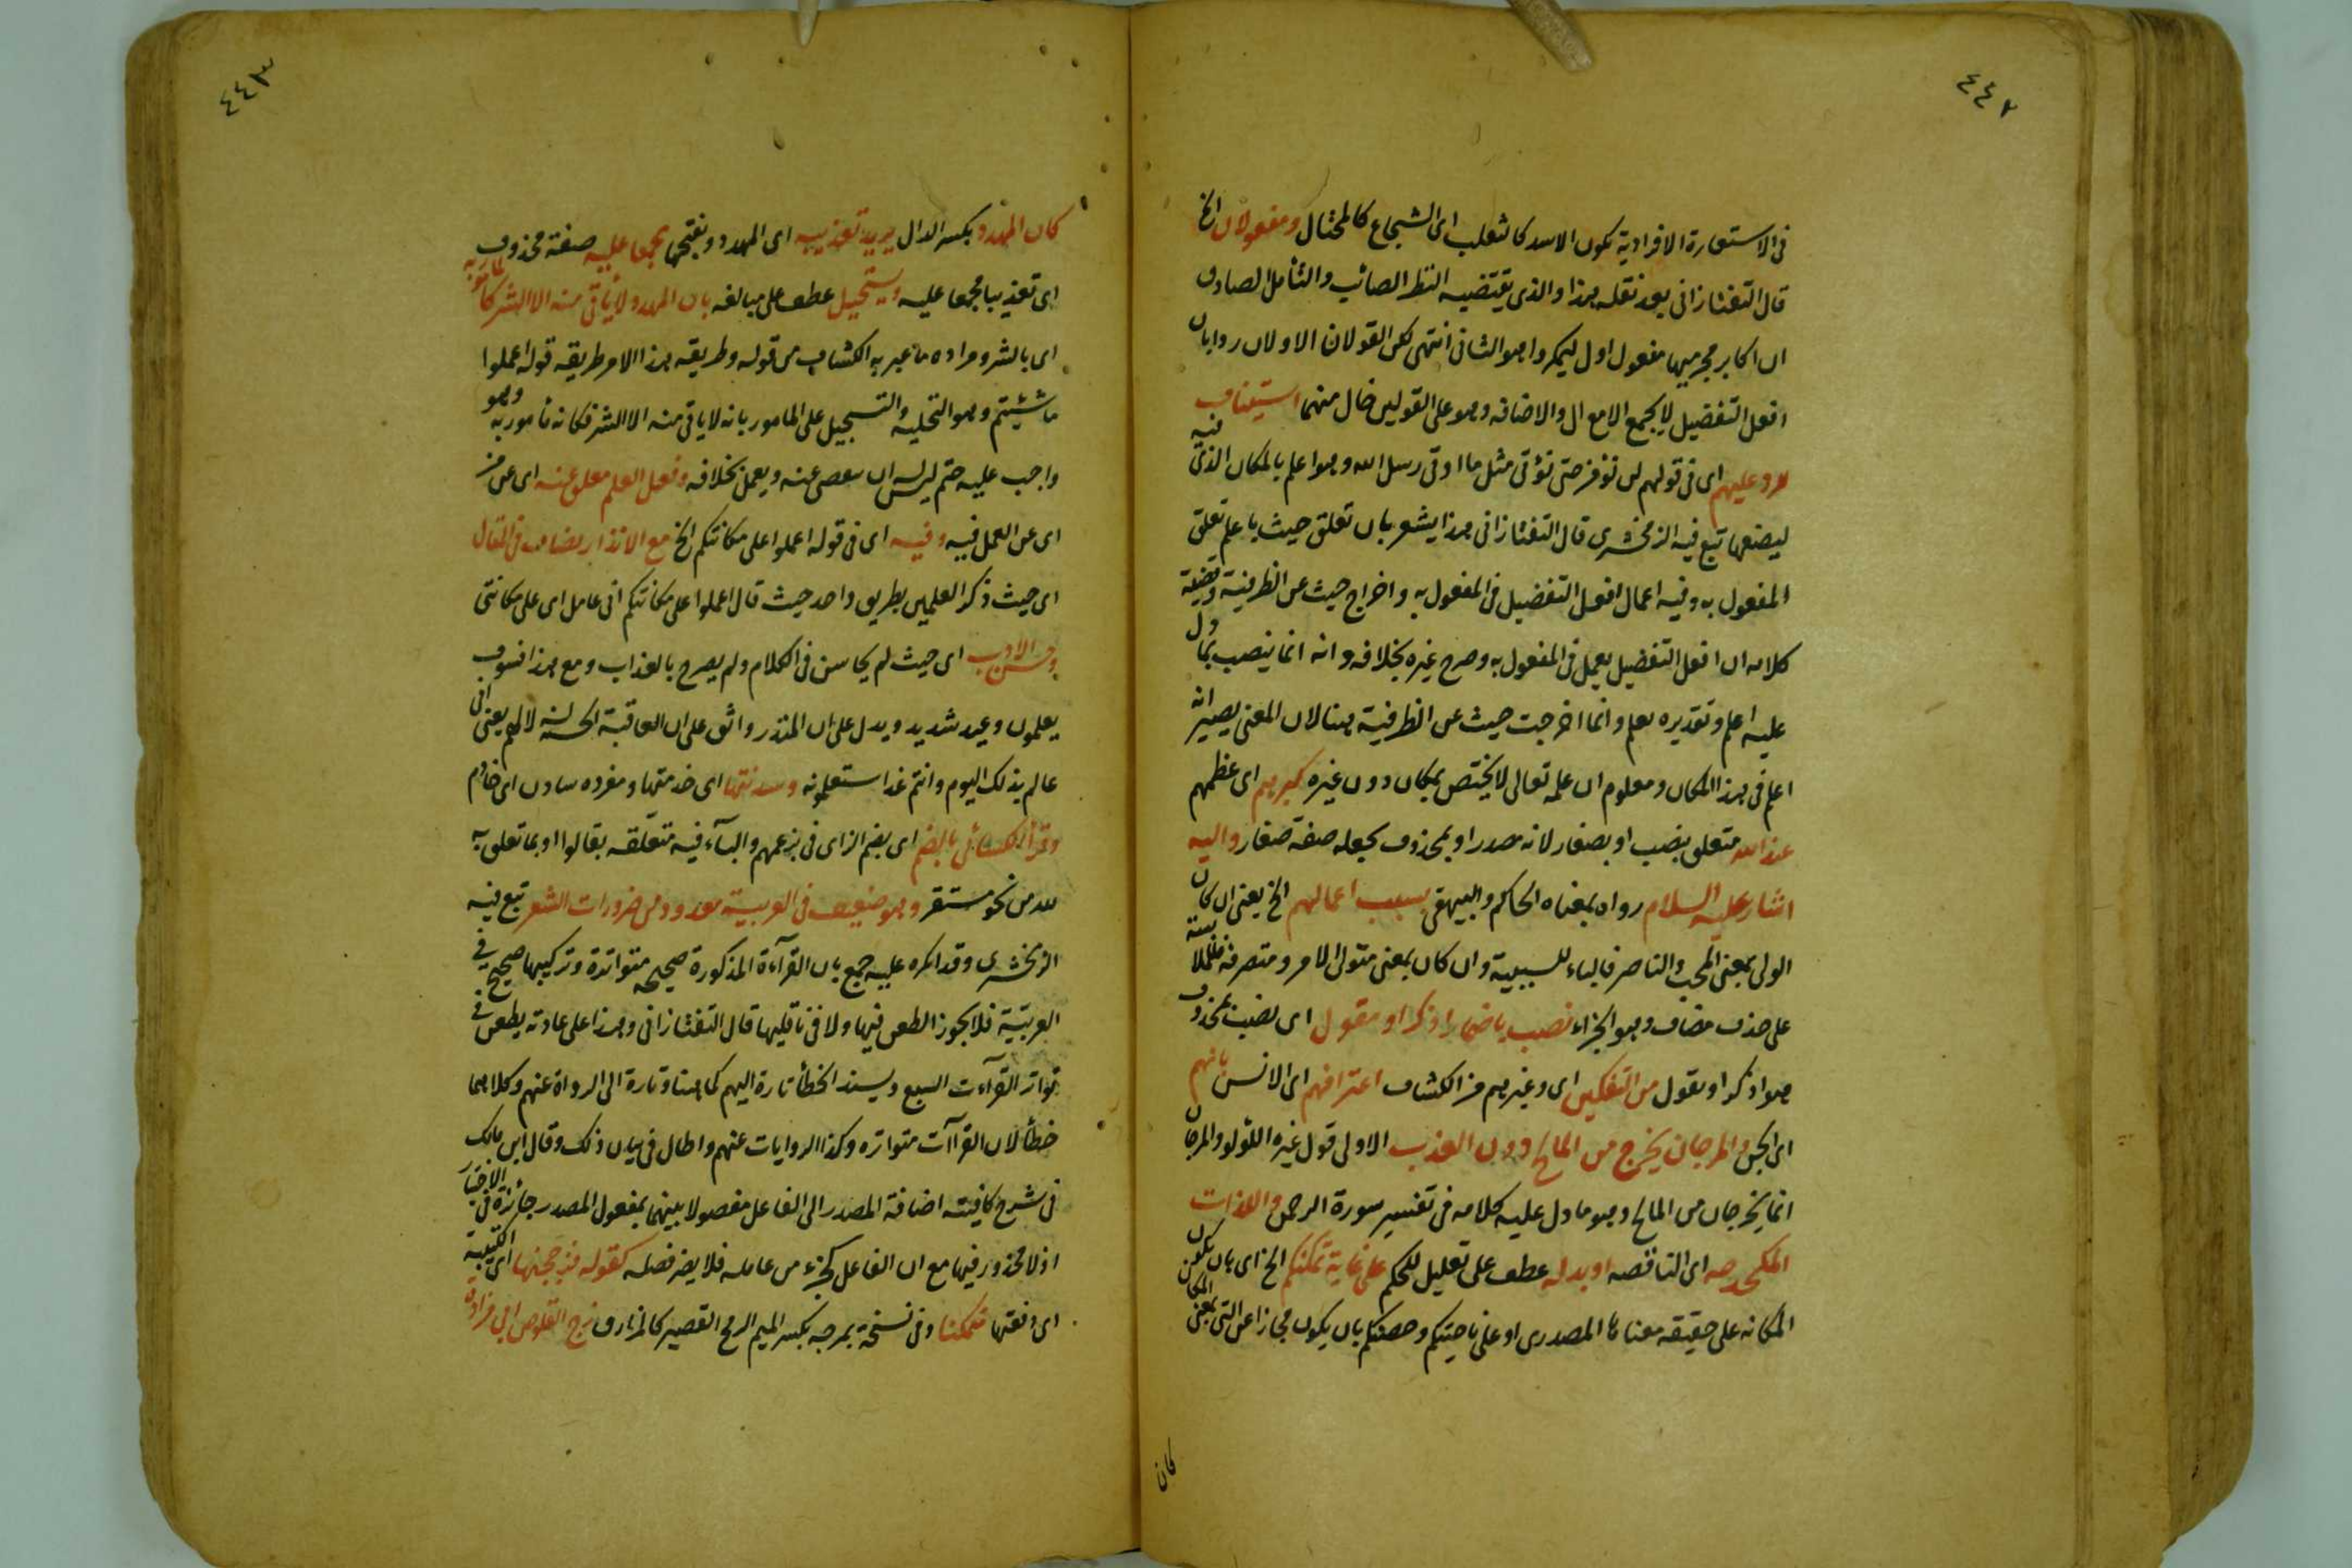 ٤٤٢
فى الاستعارة الافرادية يكون الاسد كالثعلب اى الشجاع كالمحتال ومفعولان الخ
قال التفتازانى بعد نقله هذا والذى يقتضيه النظر الصائب والتأمل الصادق
ان اكابر مجرميها مفعول اول ليمكروا هو الثانى انتهى لكن القولان الاولان رواياه
افعل التفضيل لا يجمع الا مع ال والاضافه وهو على القولين خال منهما استيناف
للرد عليهم اى فى قولهم لن نؤمن حتى نؤتى مثل ما اوتى رسل الله وهو اعلم بالمكان الذى فيه
ليضعها تبع فيه الزمخشرى قال التفتازانى هذا يشعر بان تعلق حيث باعلم تعلق
المفعول به وفيه اعمال افعل التفضيل فى المفعول به واخراج حيث عن الظرفية وقضية
كلامه ان افعل التفضيل يعمل فى المفعول به وصرح غيره بخلافه وانه انما ينصب بما دل
عليه اعلم وتقديره يعلم وانما اخرجت حيث عن الظرفية هنا لان المعنى يصير انه
اعلم فى هذا المكان ومعلوم ان علمه تعالى لا يختص بمكان دون غيره كبريهم اى عظمهم
عند الله متعلق بيصيب او بصغار لانه مصدر او بمحذوف بجعله صفة صغار واليه
اشار عليه السلام رواه بمعناه الحاكم والبيهقى بسبب اعمالهم الخ يعنى ان كان
الولى بمعنى المحب والناصر فالباء للسببية وان كان بمعنى متولى الامر ومتصرفه فللملابسة
على حذف مضاف وهو الجزاء نصب باضمار اذكر او مقول اى نصب بمحذوف
هو اذكر او نقول من الثقلين اى وغيرهم من الكشاف اعترافهم اى الانس بانهم
اى الجن والمرجان يخرج من المالح دون العذب الاولى قول غيره اللؤلؤ والمرجان
انما يخرجان من المالح وهو ما دل عليه كلامه فى تفسير سورة الرحمن واللذات
المخدجه اى الناقصه او بدله عطف على تعليل للحكم على غاية تمكنكم الخ اى بان يكون
المكانه على حقيقه معناها المصدرى او على ناحيتكم وجهتكم بان يكون مجازا عن التى بمعنى المكان
كان
٤٤٣
كان المهدد بكسر الدال يريد تعذيبه اى المهدد وبفتحها مجمعا عليه صفة محذوف
اى تعذيبا مجمعا عليه وتسجيل عطف على مبالغه بان المهدد لا يأتى منه الا الشر كالمأمور به
اى بالشر ومراده ما عبر به الكشاف من قوله وطريقه هذا الامر طريقه قوله اعملوا
ما شئتم وهو التخليه والتسجيل على المامور بانه لا ياتى منه الا الشر فكانه مأمور به وهو
واجب عليه حتم ليس له ان يتفصى عنه ويعمل بخلافه وفعل العلم معلق عنه اى عن من
اى عن العمل فيه وفيه اى فى قوله اعملوا على مكانتكم الخ مع الانذار انصاف فى المقال
اى حيث ذكر العلمين بطريق واحد حيث قال اعملوا على مكانتكم انى عامل اى على مكانتى
وحسن الادب اى حيث لم يخاشن فى الكلام ولم يصرح بالعذاب ومع هذا فسوف
يعلمون وعيد شديد ويدل على ان المنذر واثق على ان العاقبة الحسنه له لا لهم يعنى انى
عالم بذلك اليوم وانتم غدا ستعلمونه وسدنتها اى خدمتها ومفرده سادن اى خادم
وقرأ الكسائى بالضم اى بضم الزاى فى بزعمهم والباء فيه متعلقه بقالوا او بما تعلق به
لله من نحو مستقر وهو ضعيف فى العربية معدود من ضرورات الشعر تبع فيه
الزمخشرى وقد انكره عليه جمع بان القرآءة المذكورة صحيحه متواترة وتركيبها صحيح فى
العربيّة فلا يجوز الطعن فيها ولا فى ناقليها قال التفتازانى وهذا على عادته يطعن فى
تواتر القرآءت السبع ويسند الخطأ تارة اليهم كما هنا وتارة الى الرواة عنهم وكلاهما
خطأ لان القراآت متواتره وكذا الروايات عنهم واطال فى بيان ذلك وقال ابن مالك
فى شرح كافيته اضافة المصدر الى الفاعل مفصولا بينهما بمفعول المصدر جائزة فى الاختيار
اذ لا محذور فيها مع ان الفاعل كجزء من عامله فلا يضر فصله كقوله فزججتها اى الكتيبة
اى دفعتها متمكنا وفى نسخة بمزجه بكسر الميم الرمح القصير كالمزراق زج القلوص ابى مزادة